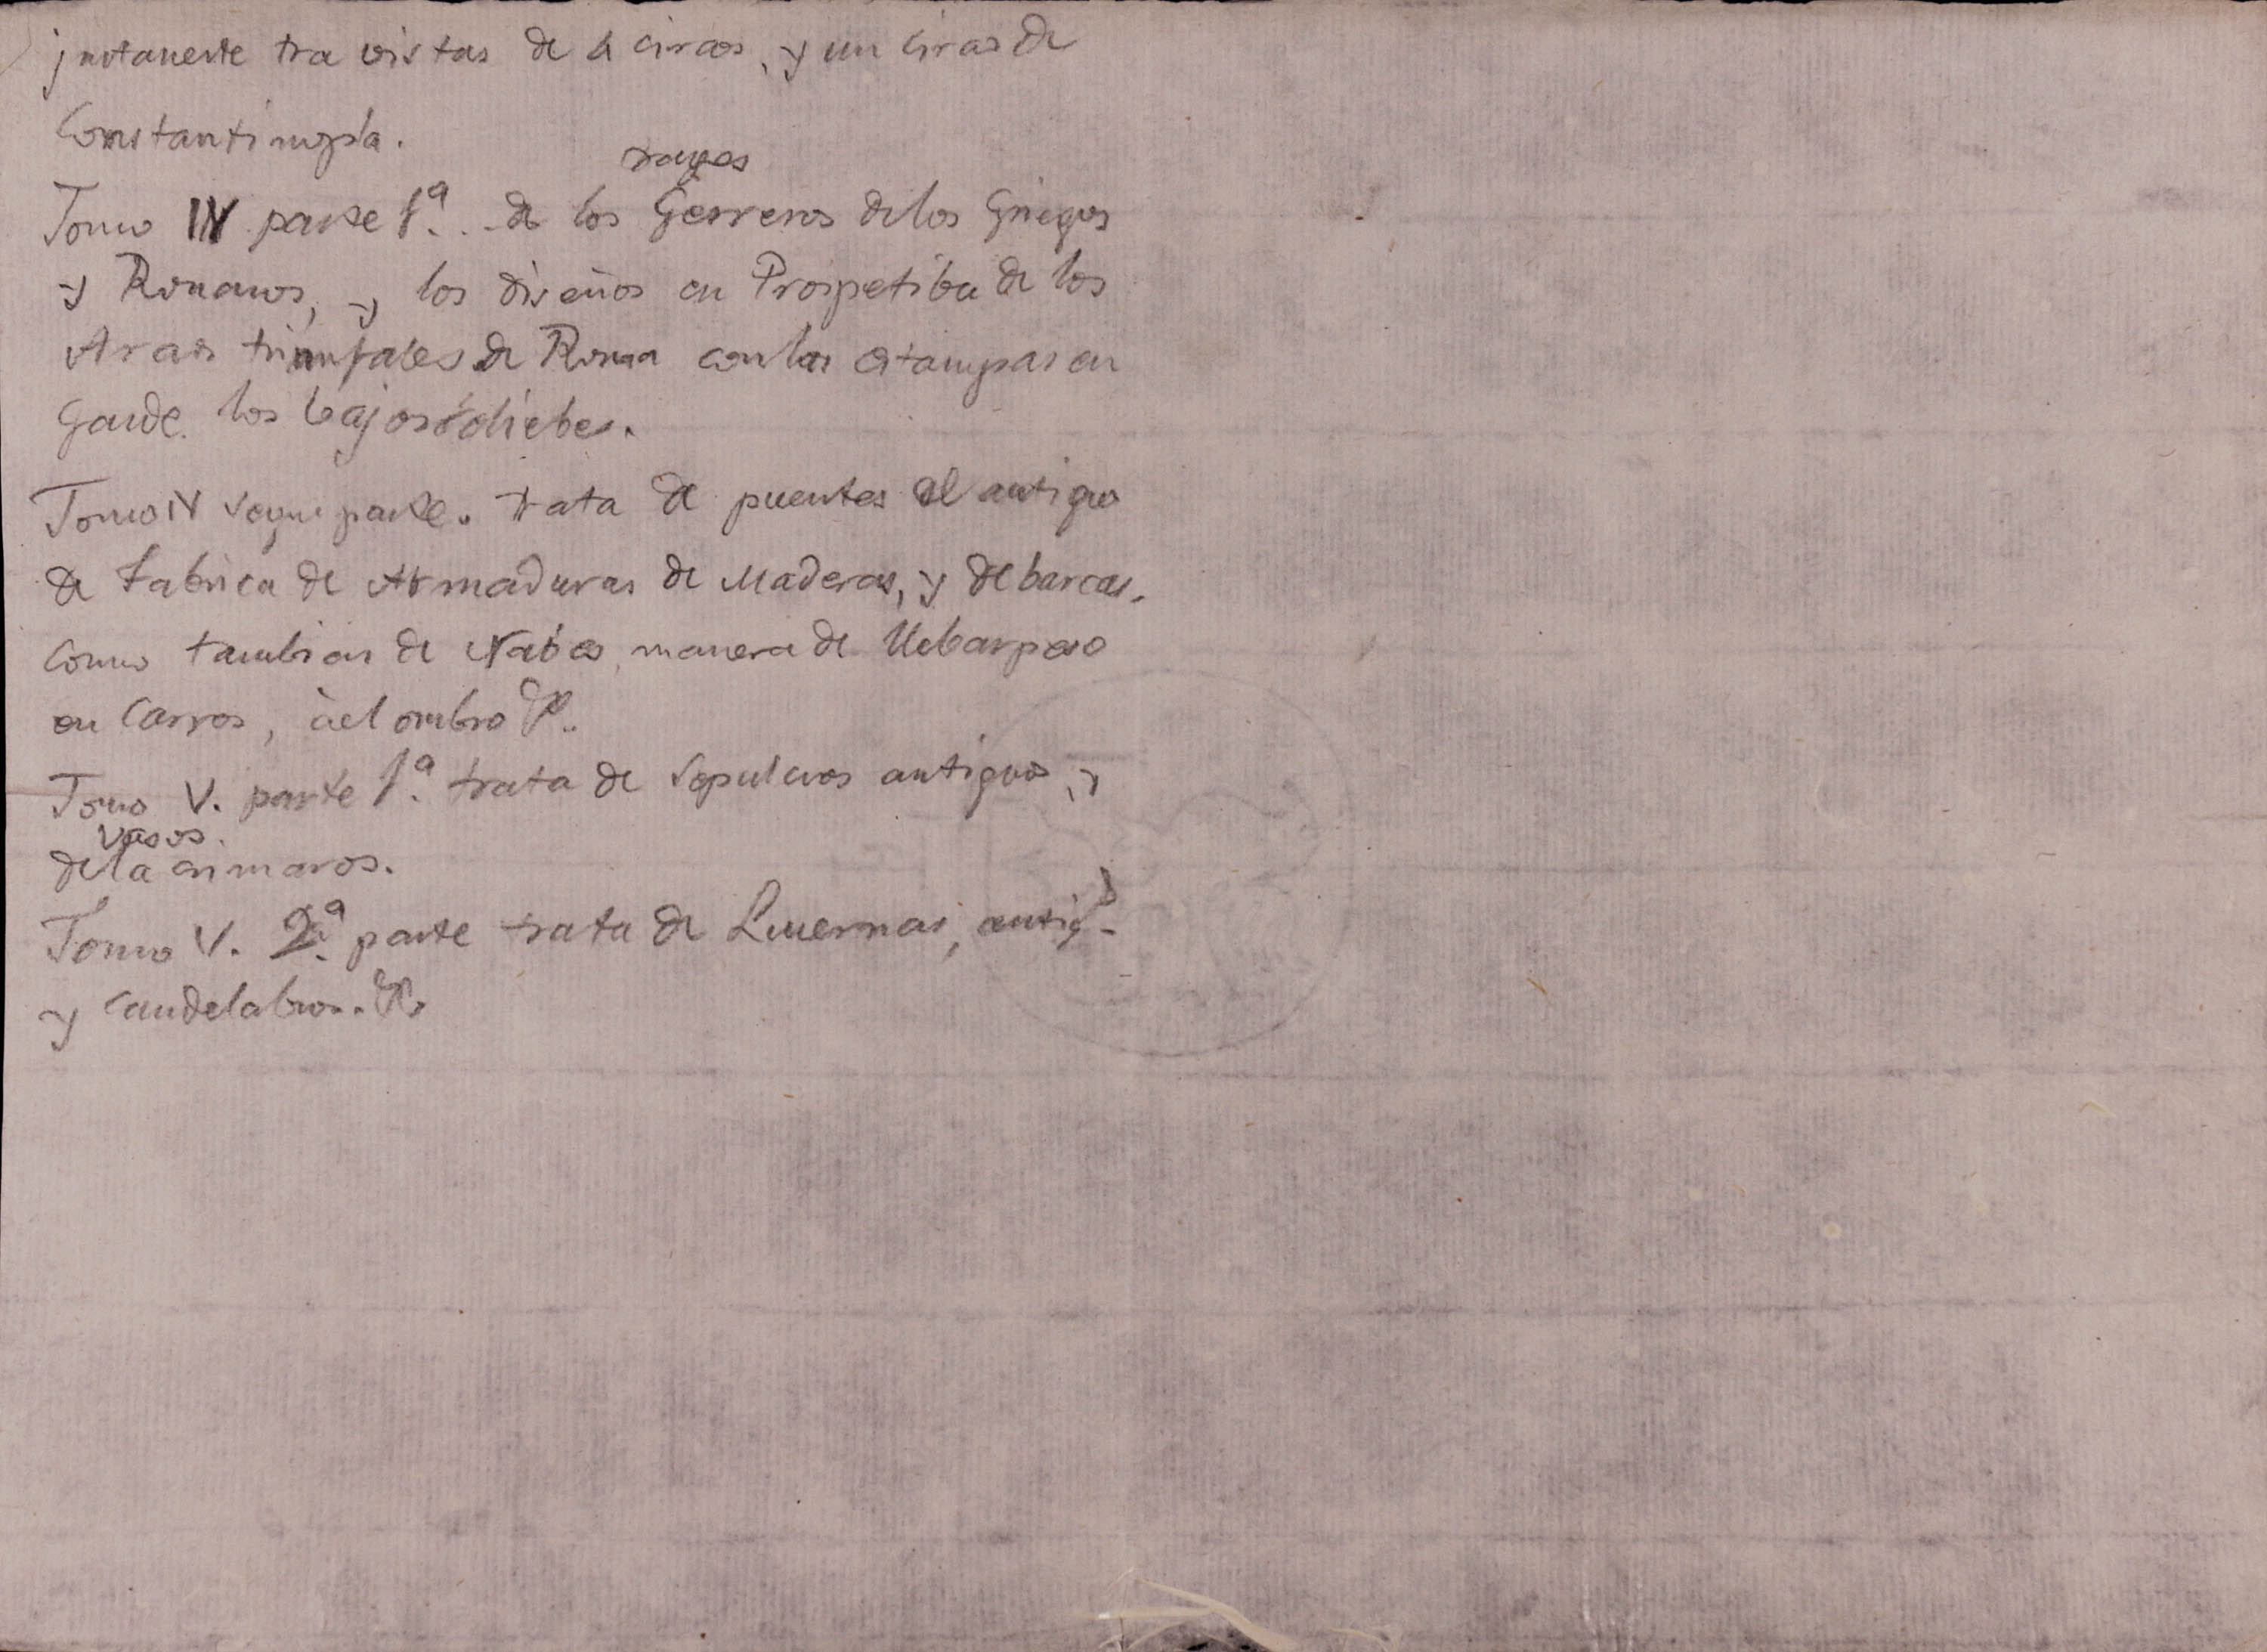 juntamente tra vistas de 4 circos, y un circo de
Constantinopla.
trages
Tomo IV parte 1ª. . de los Gerreros de los Griegos
y Romanos, y los diseños en Prospetiba de los
Arcos triunfales de Roma con las estampas en
Gande. los bajos reliebes.
Tomo IV segu parte. trata de puentes el antiguo
de Fabrica de Armaduras de Maderas, y de barcas,
como tambien de Nabes, manera de llebar peso
en Carros, àel ombro &.
Tomo V. parte 1ª. trata de sepulcros antiguos, y
vasos.
de la
Tomo V. 2ª. parte trata de Lucernas, antigs
y candelabros. &.